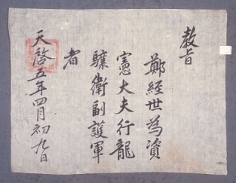 教旨
鄭經世爲資
憲大夫行龍
驤衛副護軍
者
天啓五年四月初九日